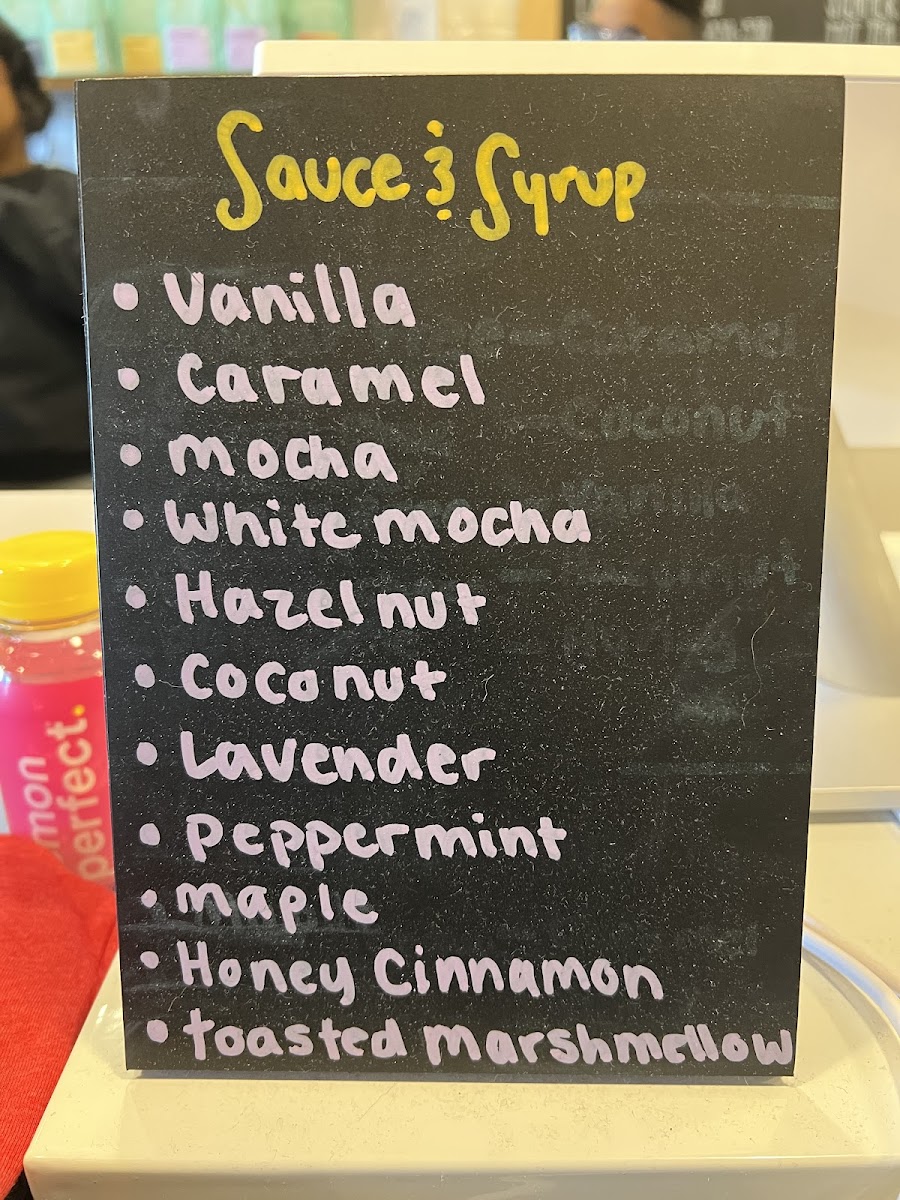 Sauce & Syrup
• Vanilla
• Caramel
• mocha
• White mocha
• Hazelnut
• Coconut
• Lavender
• Peppermint
• maple
• Honey Cinnamon
• toasted marshmellow
Caramel
Coconut
Vanilla
mon
perfect.